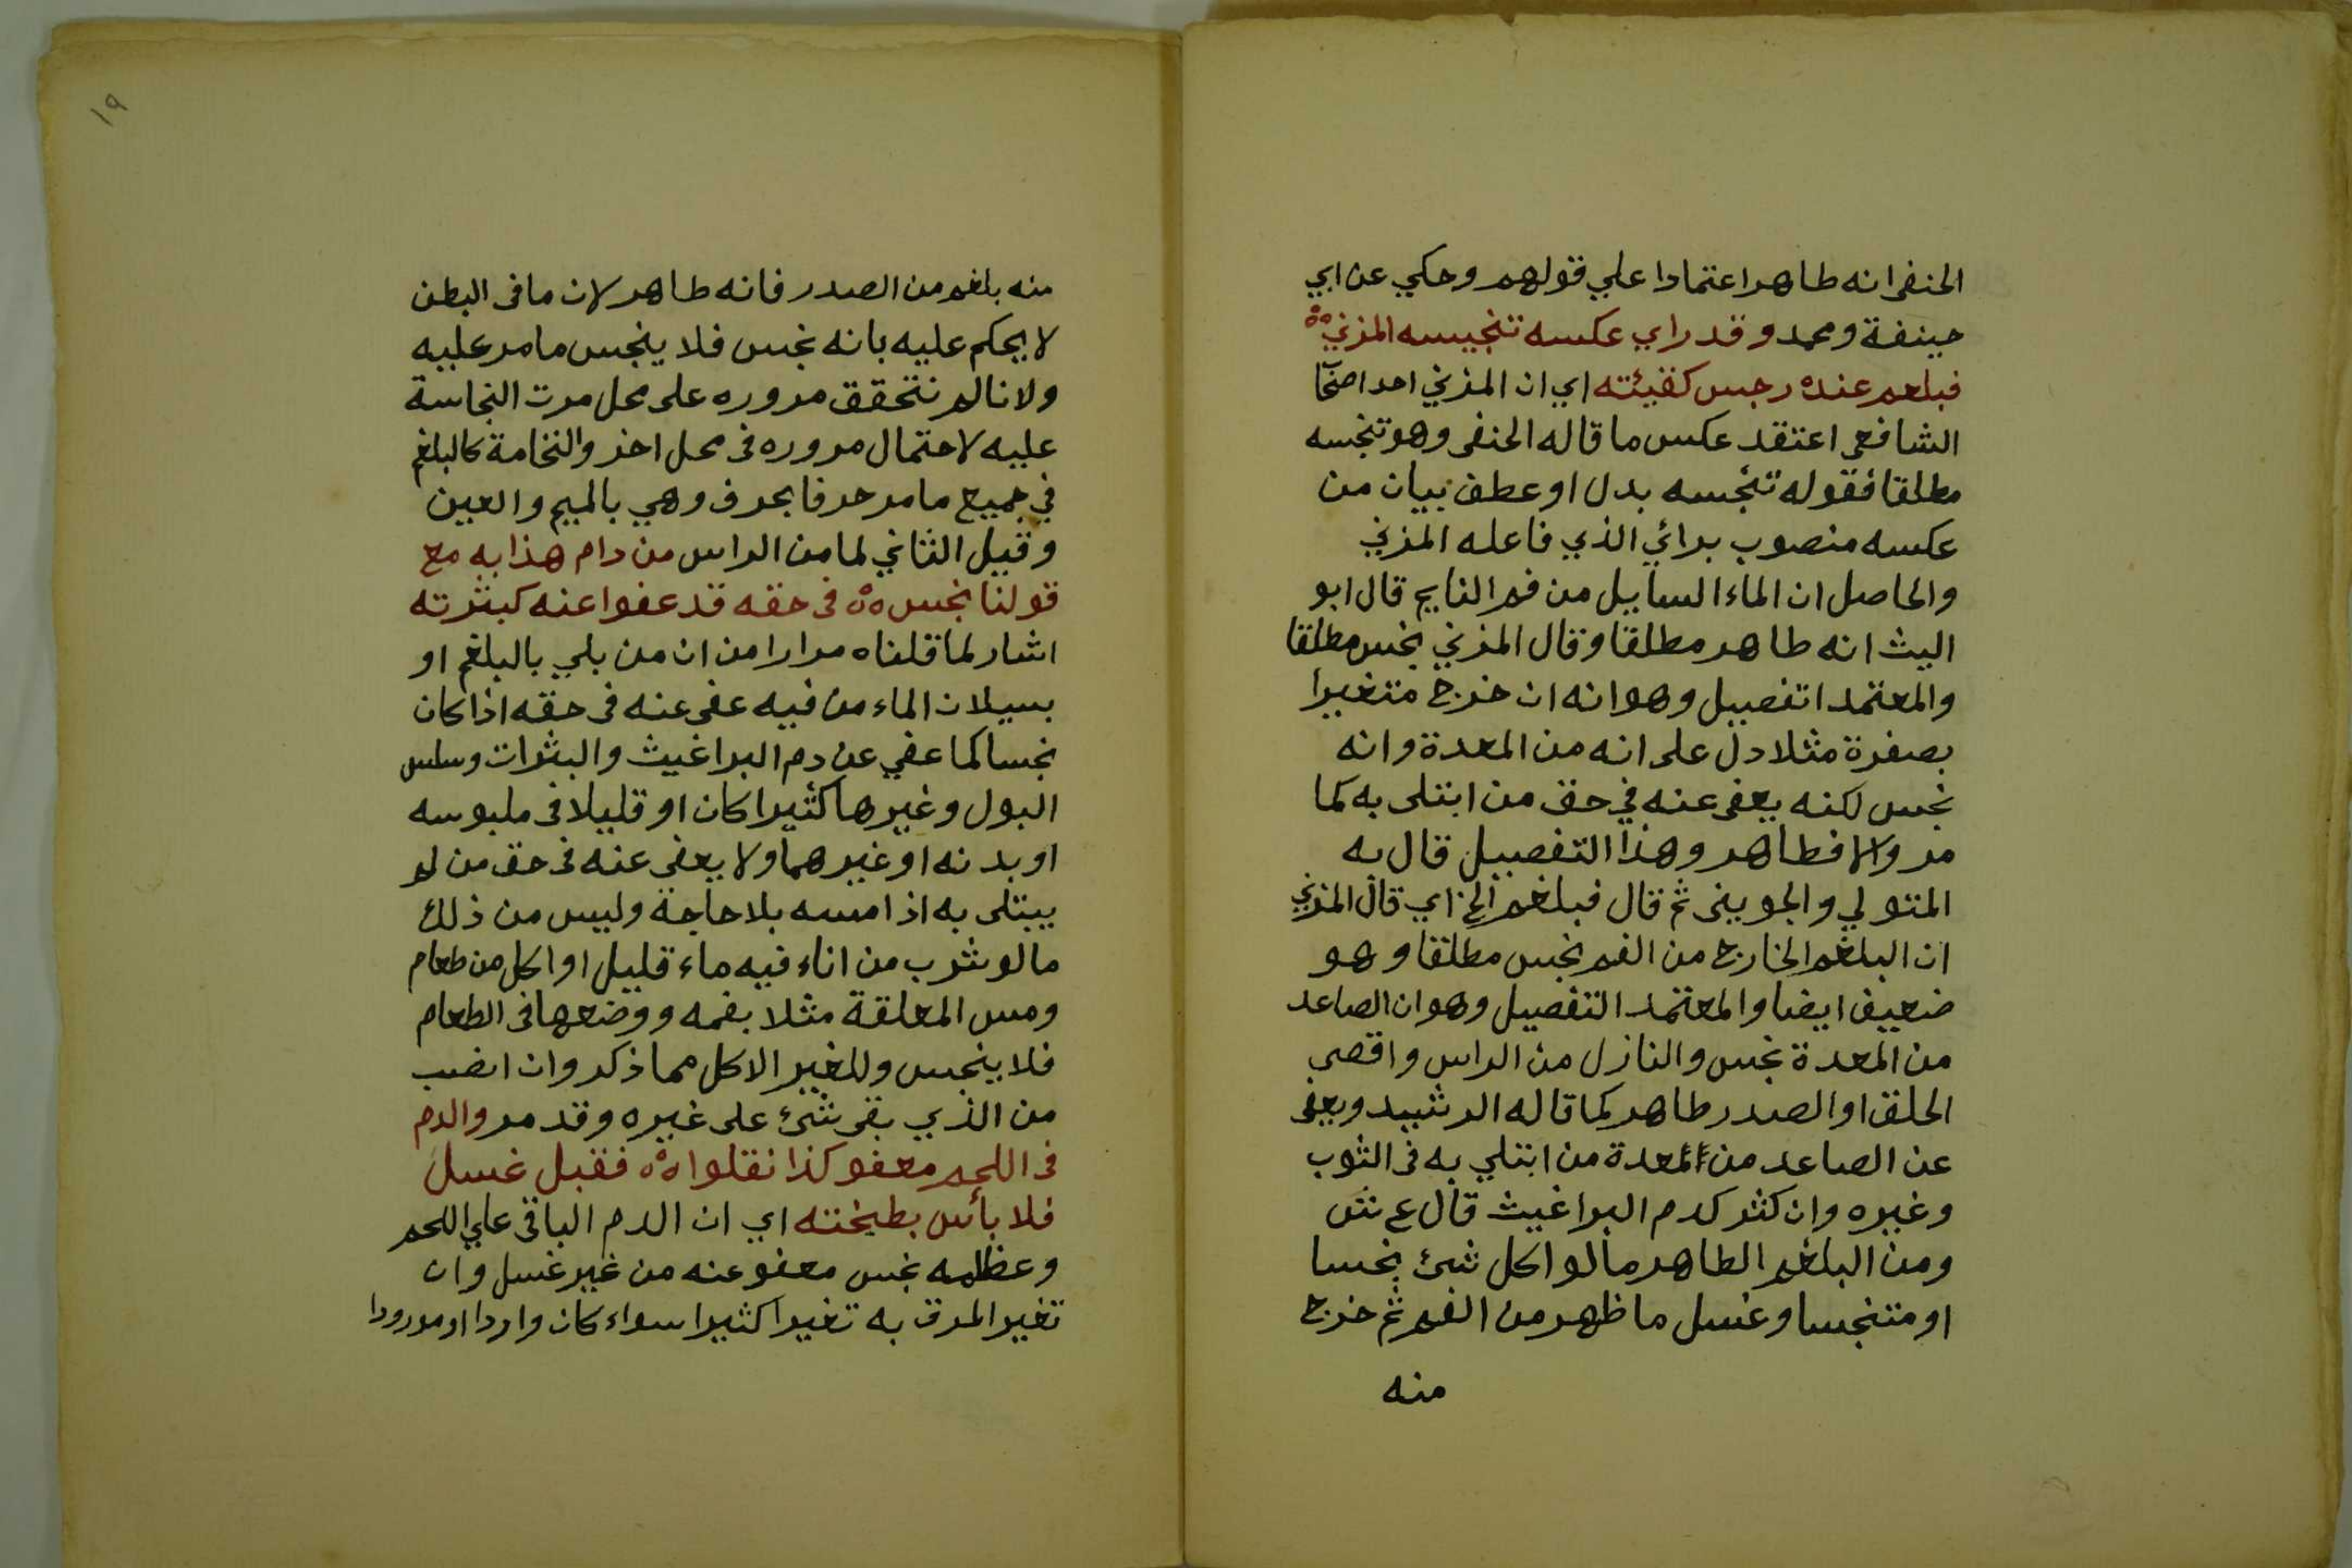 الحنفى انه طاهر اعتمادا علي قولهم وحكي عن ابي
حينفة ومحمد وقد راي عكسه تنجيسه المزني
فبلغم عنده رجس كقيئته اي ان المزني احد اصحاب
الشافعى اعتقد عكس ما قاله الحنفى وهو تنجسه
مطلقا فقوله تنجسه بدل او عطف بيان من
عكسه منصوب برائي الذي فاعله المزني
والحاصل ان الماء السايل من فم النايم قال ابو
اليث انه طاهر مطلقا وقال المزني نجس مطلقا
والمعتمد اتفصيل وهو انه ان خرج متغيرا
بصفرة مثلا دل على انه من المعدة وانه
نجس لكنه يعفى عنه في حق من ابتلى به كما
مر والا فطاهر وهذا التفصيل قال به
المتولي والجوينى ثم قال فبلغم الخ اي قال المزني
ان البلغم الخارج من الفم نجس مطلقا وهو
ضعيف ايضا والمعتمد التفصيل وهو ان الصاعد
من المعدة نجس والنازل من الراس واقصى
الحلق او الصدر طاهر كما قاله الرشيد ويعفى
عن الصاعد من المعدة من ابتلي به فى الثوب
وغيره وان كثر كدم البراغيث قال ع ش
ومن البلغم الطاهر ما لو اكل شئ نجسا
او متنجسا وغسل ما ظهر من الفم ثم خرج
منه
١٩
منه بلغم من الصدر فانه طاهر لان ما فى البطن
لا يحكم عليه بانه نجس فلا ينجس ما مر عليه
ولانا لم نتحقق مروره على محل مرت النجاسة
عليه لاحتمال مروره فى محل اخر والنخامة كالبلغم
في جميع ما مر حرفا بحرف وهي بالميم والعين
وقيل الثاني لما من الراس من دام هذا به مع
قولنا نجس فى حقه قد عفوا عنه كبثرته
اشار لما قلناه مرارا من ان من بلي بالبلغم او
بسيلان الماء من فيه عفى عنه فى حقه اذا كان
نجسا كما عفي عن دم البراغيث والبثرات وسلس
البول وغيرها كثيرا كان او قليلا فى ملبوسه
او بدنه او غيرهما ولا يعفى عنه فى حق من لم
يبتلى به اذا مسه بلا حاجة وليس من ذلك
ما لو شرب من اناء فيه ماء قليل او اكل من طعام
ومس المعلقة مثلا بفمه ووضعها فى الطعام
فلا ينجس وللغير الاكل مما ذكر وان انصب
من الذي بقى شئ على غيره وقد مر والدم
فى اللحم معفو كذا نقلوا فقبل غسل
فلا بأس بطبختته اي ان الدم الباقى علي اللحم
وعظامه نجس معفو عنه من غير غسل وان
تغير المرق به تغيرا كثيرا سواء كان واردا او مورودا